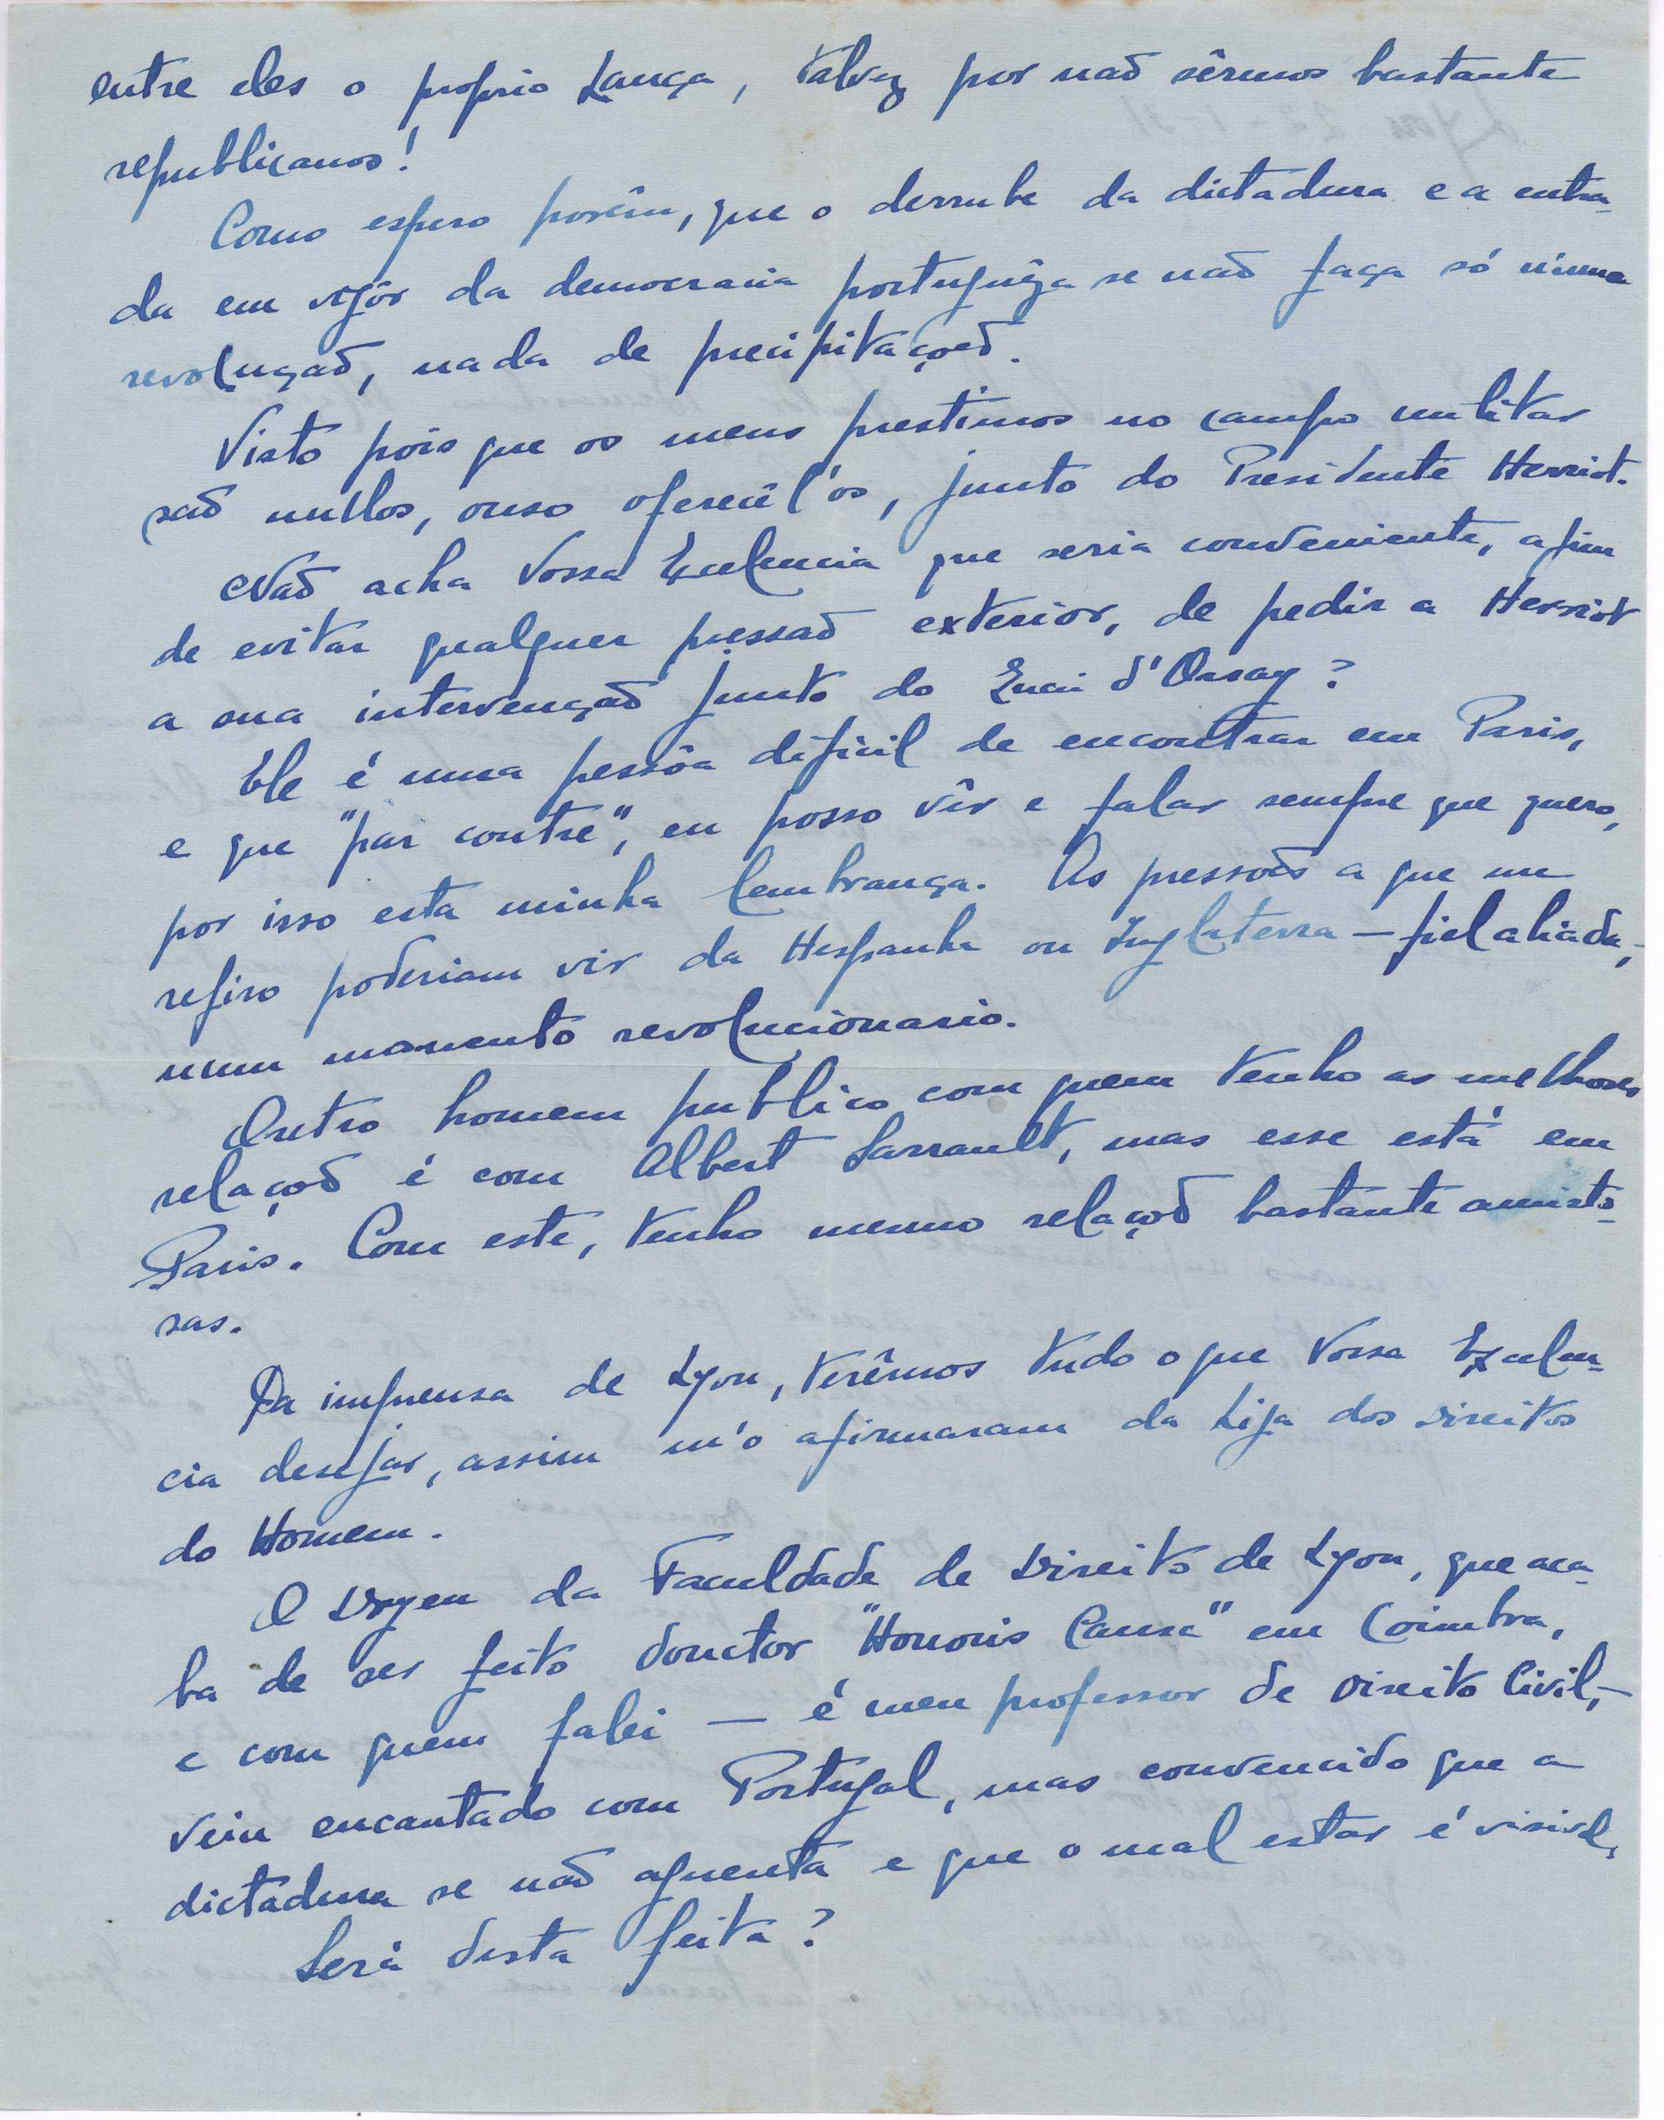 entre eles o proprio Lança, talvez por naõ sêrmos bastante
republicanos!
Como espero porêm, que o derrube da dictadura e a entra-
da em vigôr da democracia portuguêza se naõ faça só numa
revoluçaõ, nada de precipitaçoẽs.
Visto pois que os meus prestimos no campo militar
saõ nullos, ouso oferecêl'os, junto do Presidente Herriot.
Naõ acha Vossa Excelencia que seria conveniente, afim
de evitar qualquer pressaõ exterior, de pedir a Herriot
a sua intervençaõ junto do Quai d'Orsay?
Ele é uma pessôa dificil de encontrar em Paris,
e que "par contre", eu posso vêr e falar sempre que quero,
por isso esta minha lembrança. As pressoẽs a que me
refiro poderiam vir da Hespanha ou Inglaterra – fiel aliada, –
num momento revolucionario.
Outro homem publico com quem tenho as melhores
relaçoẽs é com Albert Sarrault, mas esse está em
Paris. Com este, tenho mesmo relaçoẽs bastante amisto-
sas.
Da imprensa de Lyon, terêmos tudo o que Vossa Excelen-
cia desejar, assim m'o afirmaram da Liga dos Direitos
do Homem.
O Doyen da Faculdade de Direito de Lyon, que aca-
ba de ser feito douctor "Honoris Causa" em Coimbra,
e com quem falei – é meu professor de Direito Civil, –
veiu encantado com Portugal, mas convencido que a
dictadura se naõ aguenta e que o mal estar é visivel.
Será desta feita?